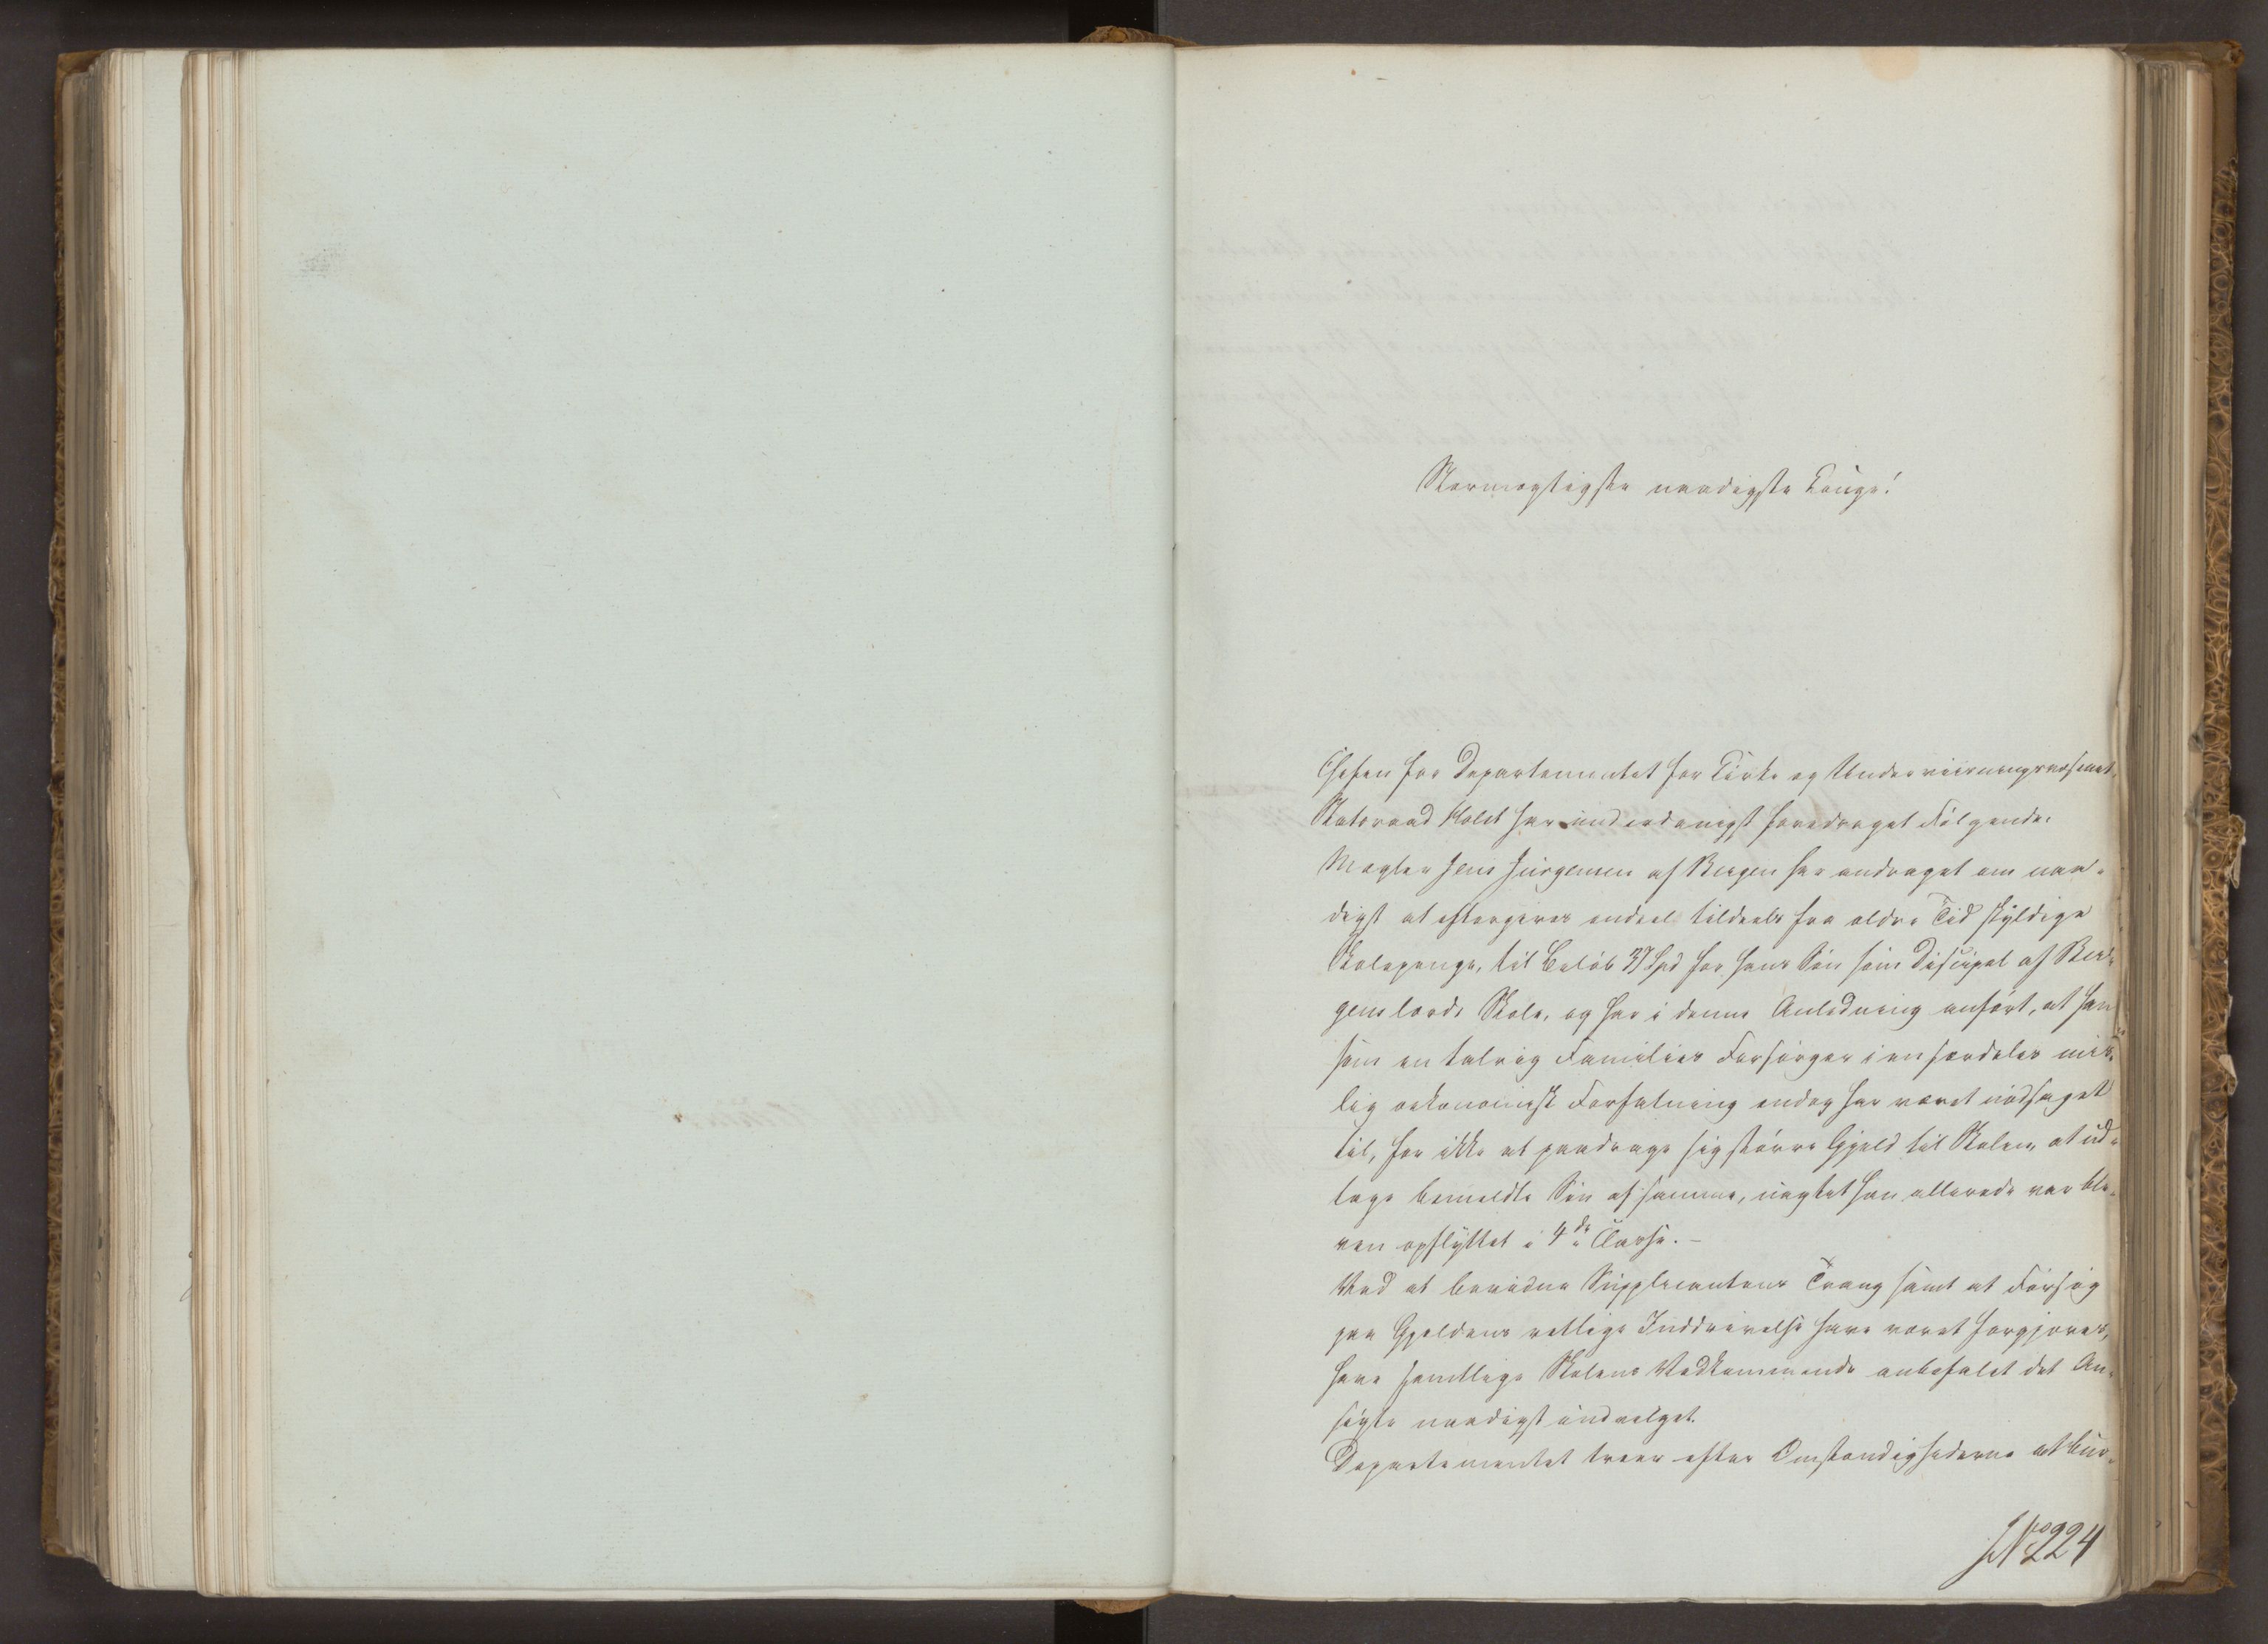 Stormægtigste naadigste Konge!
Chefen for Departementet for Kirke og Underviisningsvæsenet,
Statsraad Holst har underdanigst foredraget Følgende:
Mægler Jens Jürgensen af Bergen har andraget om naa-
digst at eftergives endeel tildeels fra ældre Tid skyldige
Skolepenge, til Beløb 37 Spd for hans Søn som Discipel af Ber-
gens lærde Skole, og har i denne Anledning anført, at han
som en talrig Families Forsørger i en særdeles mis-
lig oekonomisk Forfatning endog har været nødsaget
til, for ikke at paadrage sig større Gjæld til Skolen, at ud-
tage bemeldte Søn af samme, uagtet han allerede var ble-
ven opflyttet i 4de Classe. -
Ved at bevidne Supplicantens Trang samt at Forsøg
paa Gjeldens retlige Inddrivelse have været forgjæves,
have samtlige Skolens Vedkommende anbefalet det An-
søgte naadigst indvilget.
Departementet troer efter Omstændighederne at bur-
No 224